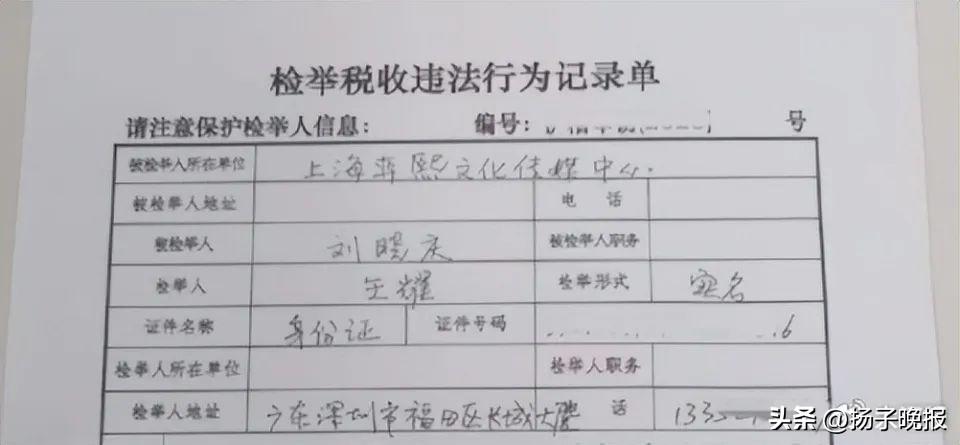 检举税收违法行为记录单
请注意保护检举人信息： 编号： 号
被检举人所在单位 上海 熙文化传媒中心.
被检举人地址 电 话
被检举人 刘晓庆 被检举人职务
检举人 王耀 检举形式 实名
证件名称 身份证 证件号码 6
检举人所在单位 检举人职务
检举人地址 广东深圳市福田区长城大 话 133
头条 @扬子晚报